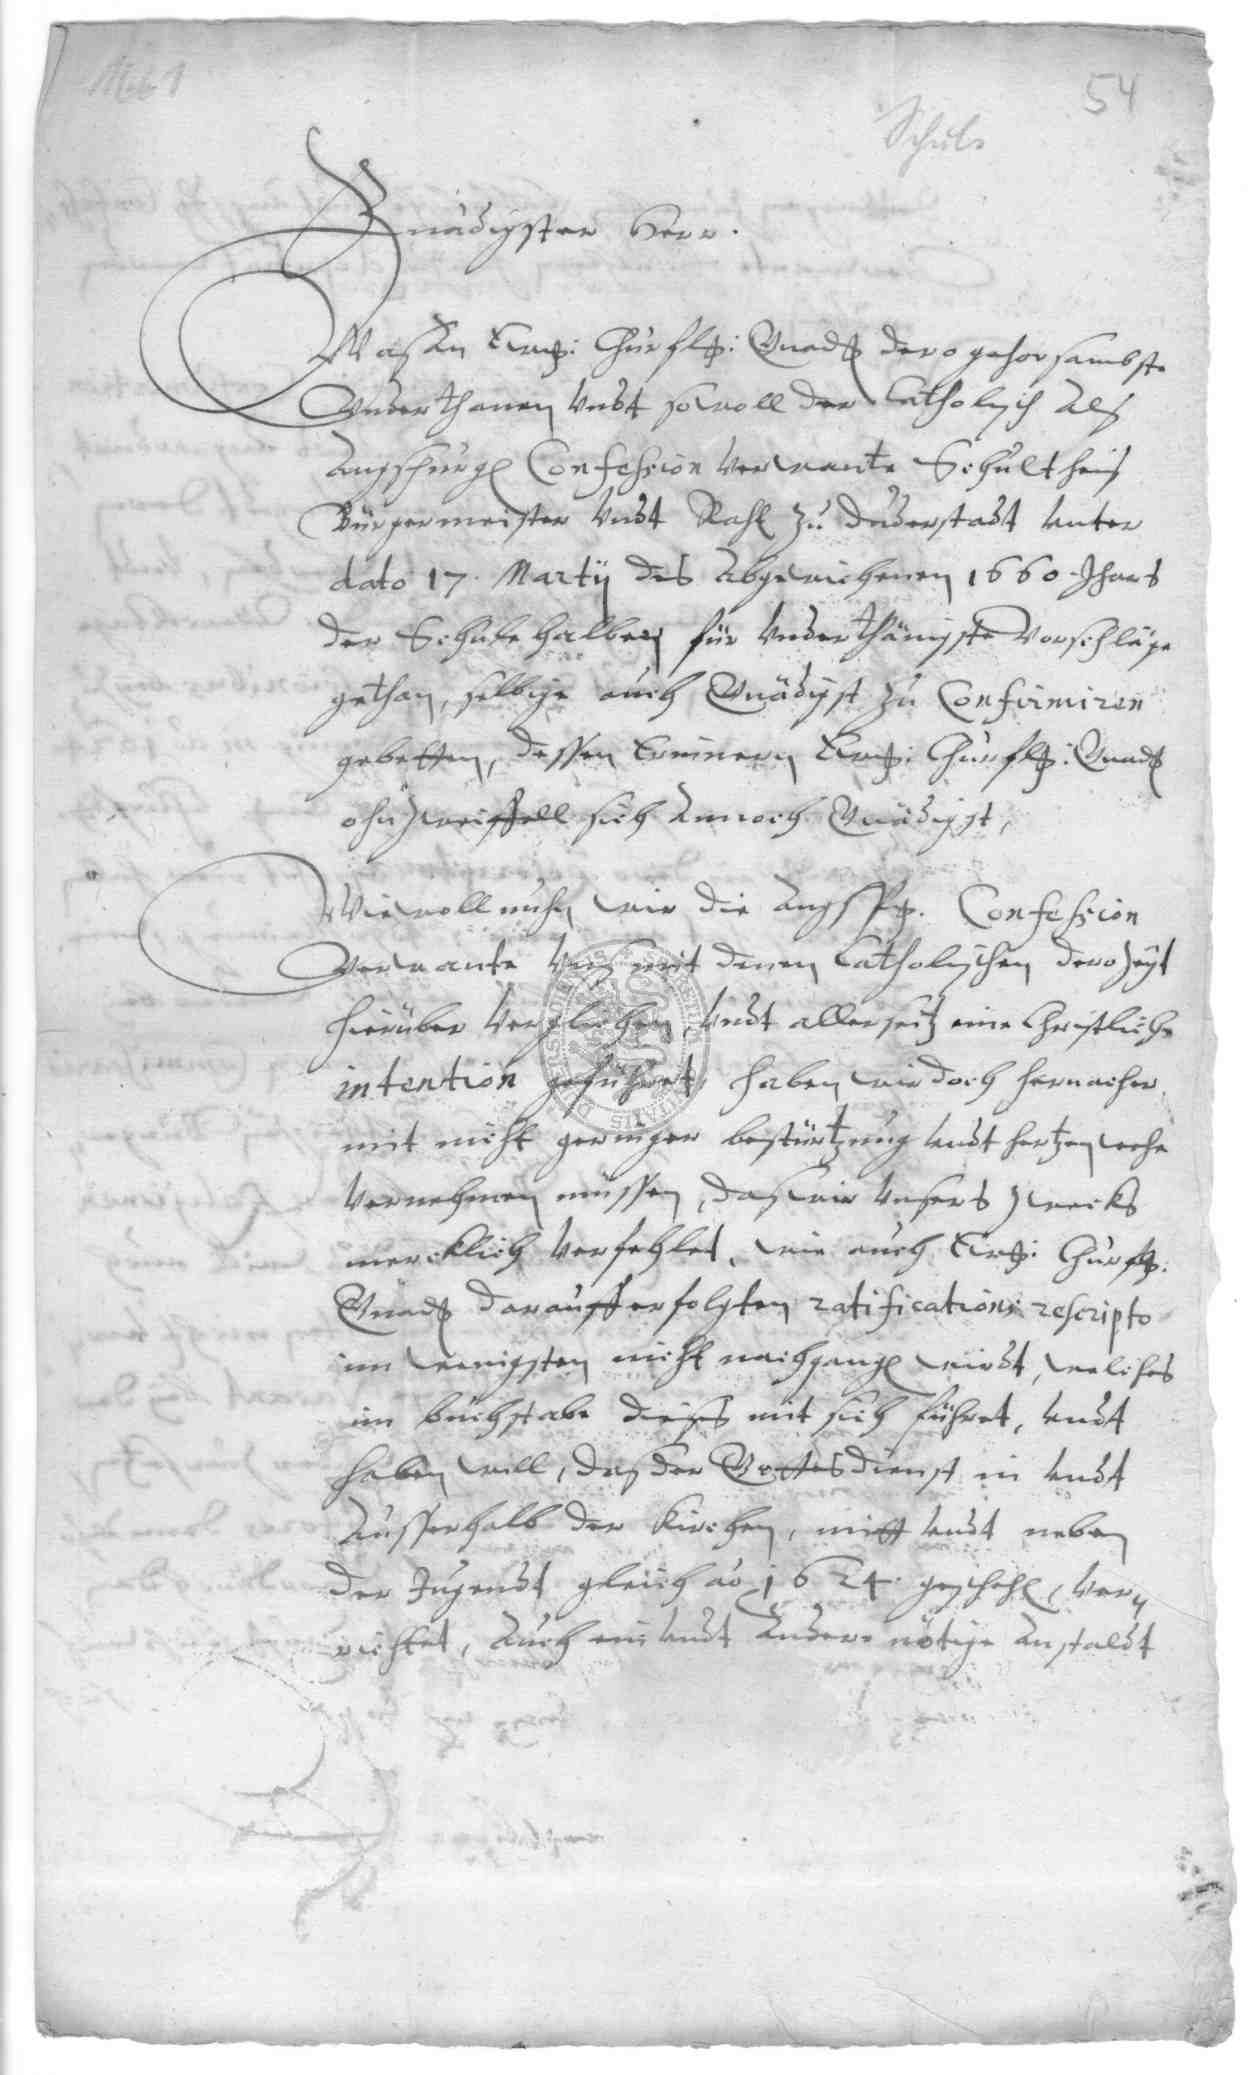 1661
54
Schule
Gnädigster Herr.
Waßen Ewrg: Churflg: Gnadg dero gehorsambste
Vnderthanen vndt sowoll der Catholisch alß
Augspurg Confession verwante Schultheiß
Bürgermeister vndt Raht zu Duderstadt unter
dato 17. Martij des abgewichenen 1660. Jhars
der Schule halben für vnderthänigste Vorschläge
gethan, selbige auch Gnädigst zu Confirmiren
gebetten, dessen erinnern Ewrg: Churflg: Gnadg
ohnzweiffell sich annoch Gnädigst,
Wiewoll nuhn wir die Augspg. Confession
verwante vnß mit denen Catholischen derozeyt
hierüber verglichen, vndt allerseitz eine Christliche
intention geführet, haben wir doch hernacher
mit nicht geringer bestürtzung undt hertzen wehe
vernehmen müssen, daß wir vnsers zwecks
mercklich verfehlet, wie auch Ewrg: Churflg:
Gnadg darauff erfolgten ratifications rescripto
im wenigsten nicht nachgang wirdt, welches
im buchstabe dieses mit sich führet, undt
haben will, daß der Gottesdienst in undt
ausserhalb der Kirchen, mitt undt neben
der Jugendt gleich ao 1624. geschehen, ver
richtet, auch ein undt andere nötige anstaldt